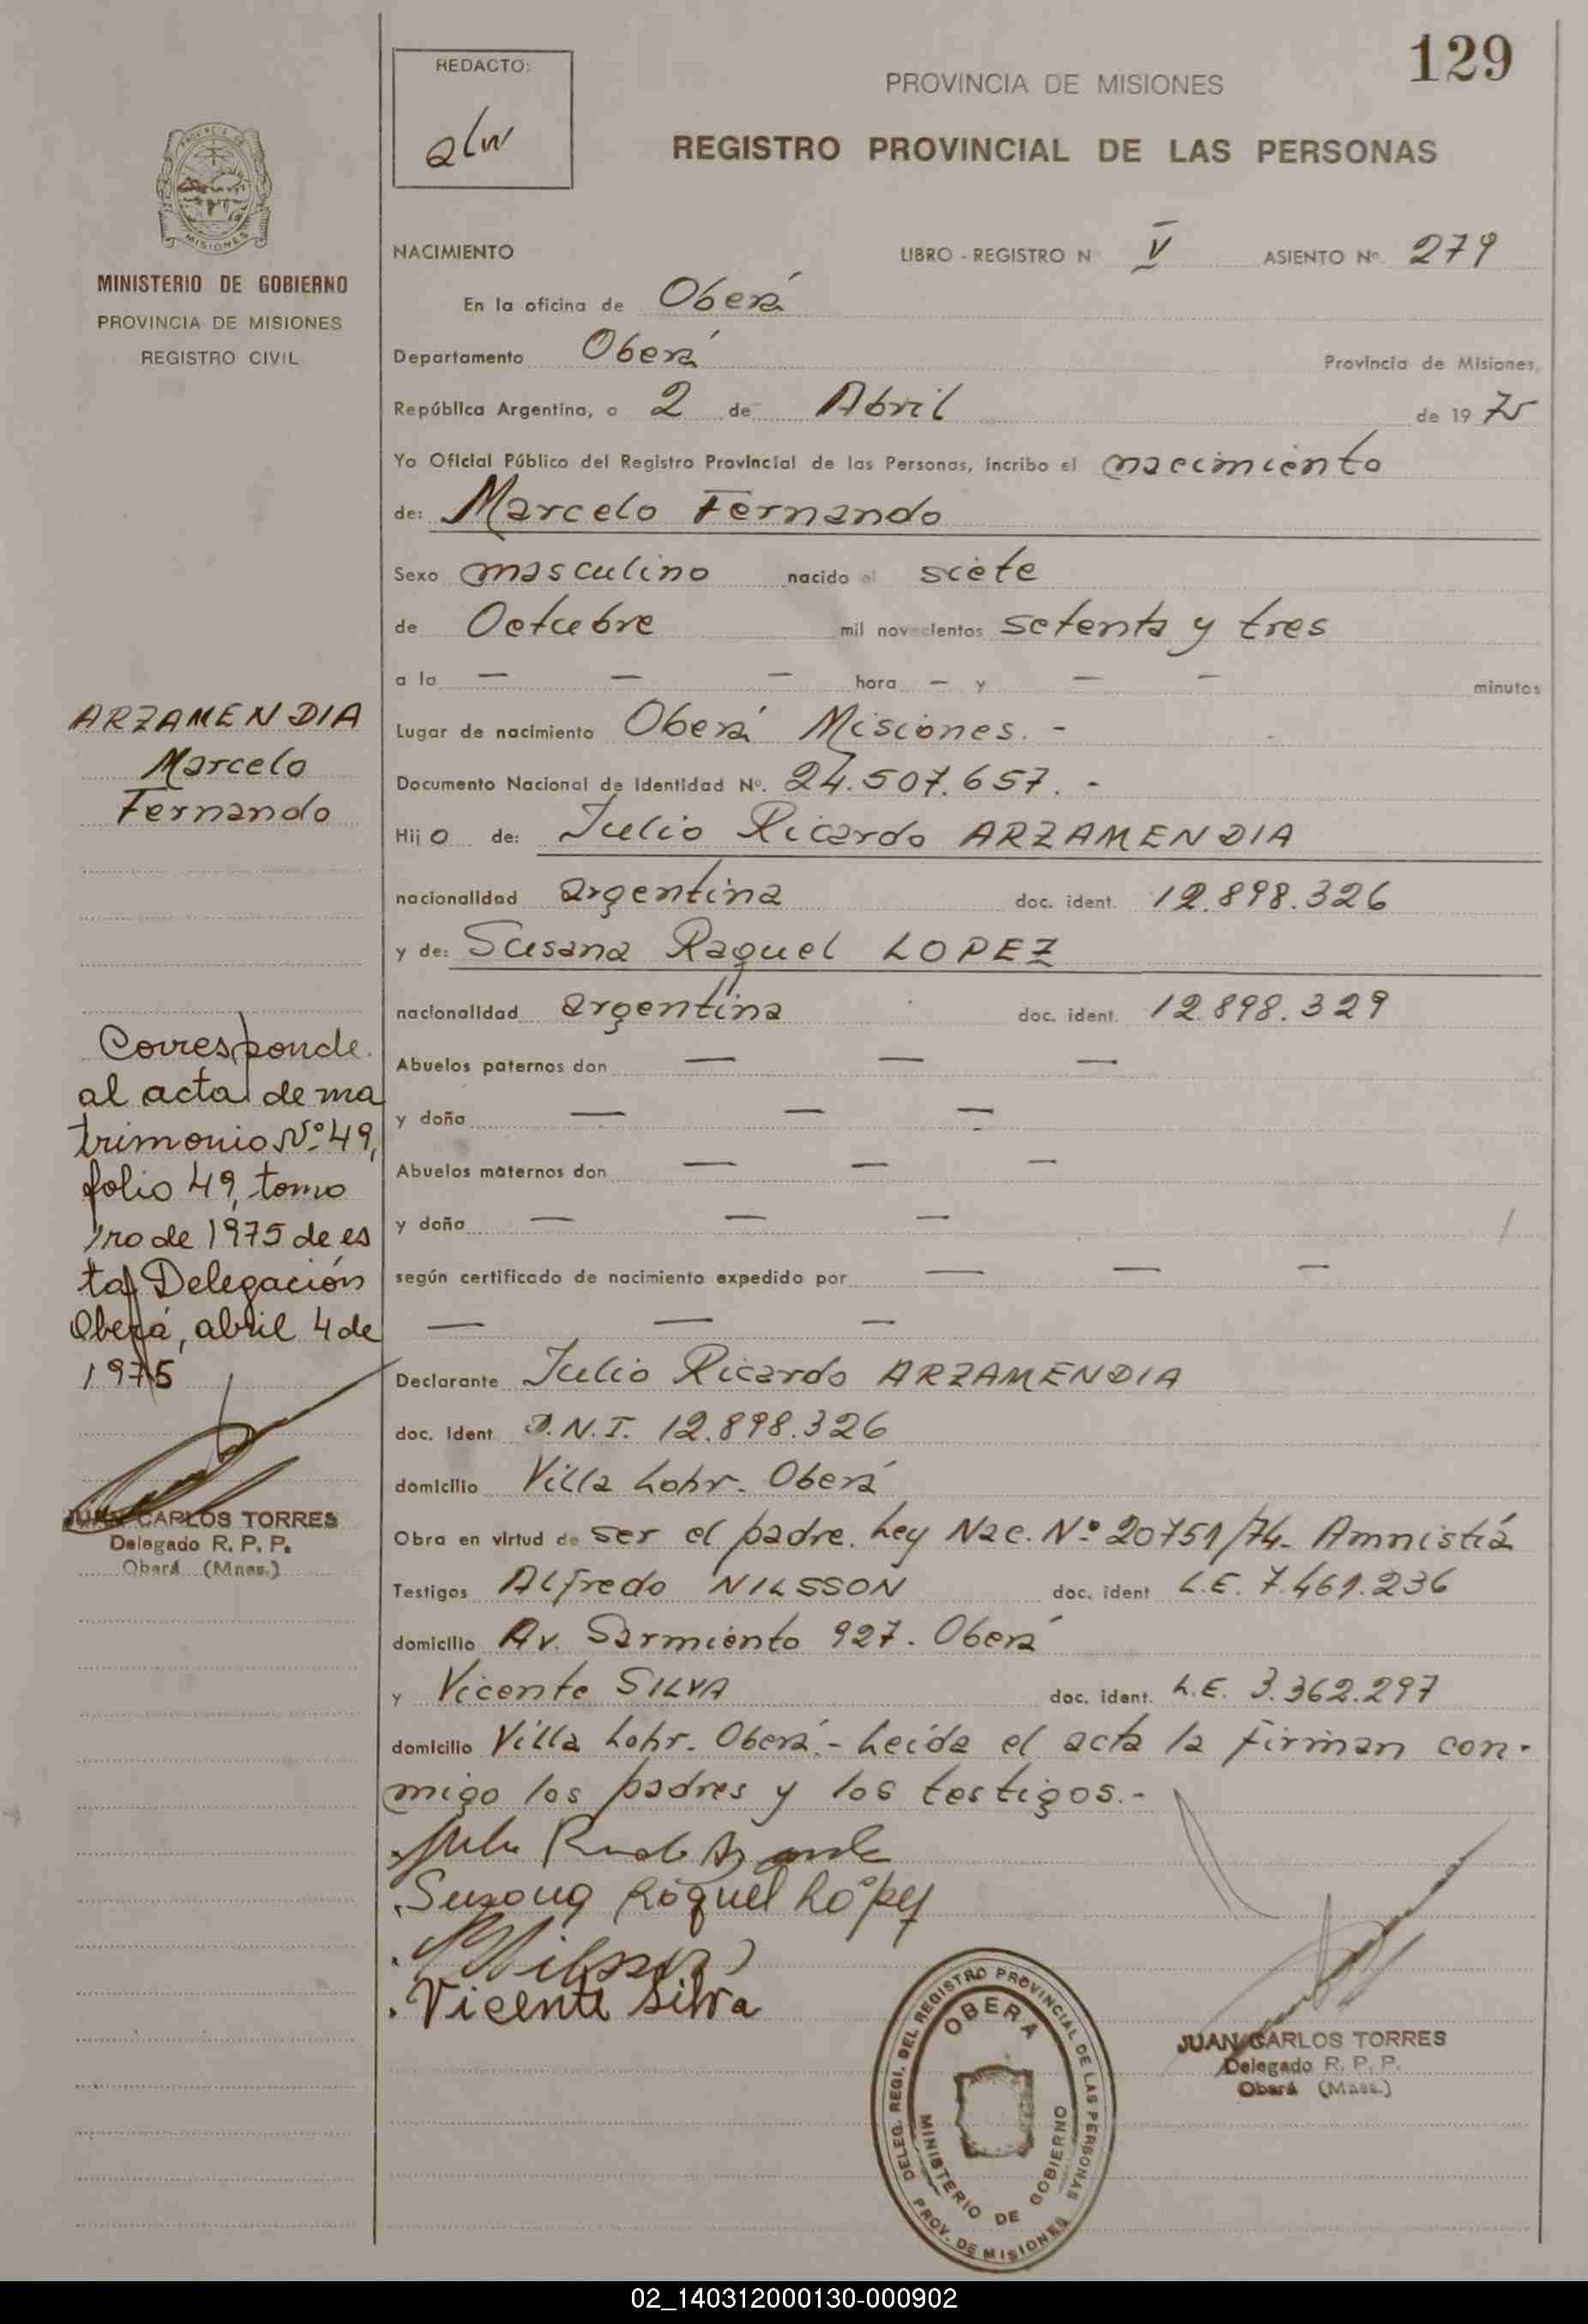 129
REDACTO:
PROVINCIA DE MISIONES
REGISTRO PROVINCIAL DE LAS PERSONAS
MISIONES
MINISTERIO DE GOBIERNO
PROVINCIA DE MISIONES
REGISTRO CIVIL
NACIMIENTO LIBRO - REGISTRO N V ASIENTO Nº 279
En la oficina de Oberá
Departamento Oberá Provincia de Misiones,
República Argentina, a 2 de Abril de 1975
Yo Oficial Público del Registro Provincial de las Personas, incribo el nacimiento
de: Marcelo Fernando
Sexo masculino nacido el siete
de Octubre mil novecientos setenta y tres
a la — — — hora — y — — minutos
Lugar de nacimiento Oberá Misiones. -
Documento Nacional de Identidad Nº. 24.507.657. -
Hijo de: Julio Ricardo ARZAMENDIA
nacionalidad argentina doc. ident. 12.898.326
y de: Susana Raquel LOPEZ
nacionalidad argentina doc. ident. 12.898.329
Abuelos paternos don — — —
y doña — — —
Abuelos maternos don — — —
y doña — — —
según certificado de nacimiento expedido por — — —
— — —
Declarante Julio Ricardo ARZAMENDIA
doc. Ident D.N.I. 12.898.326
domicilio Villa Lohr. Oberá
Obra en virtud de ser el padre. Ley Nac. Nº 20751/74- Amnistiá
Testigos Alfredo NILSSON doc. ident L.E. 7.461.236
domicilio Av. Sarmiento 927. Oberá
y Vicente SILVA doc. ident. L.E. 3.362.297
domicilio Villa Lohr. Oberá.- Leída el acta la firman con-
migo los padres y los testigos.-
Susana Raquel López
Vicente Silva
ARZAMENDIA
Marcelo
Fernando
Corresponde
al acta de ma
trimonio Nº 49,
folio 49, tomo
1ro de 1975 de es
ta Delegación
Oberá, abril 4 de
1975
JUAN CARLOS TORRES
Delegado R. P. P.
Oberá (Mnes.)
DELEG. REGI. DEL REGISTRO PROVINCIAL DE LAS PERSONAS
OBERA
MINISTERIO DE GOBIERNO
PROV. DE MISIONES
JUAN CARLOS TORRES
Delegado R. P. P.
Oberá (Mnes.)
02_140312000130-000902